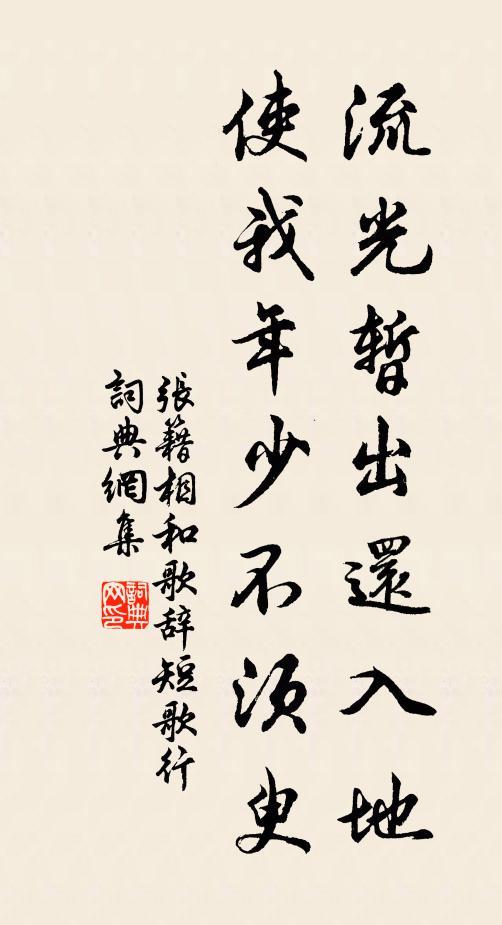 流光暫出還入地
使我年少不須臾
張籍相和歌辞短歌行
詞典網集
詞典
网印